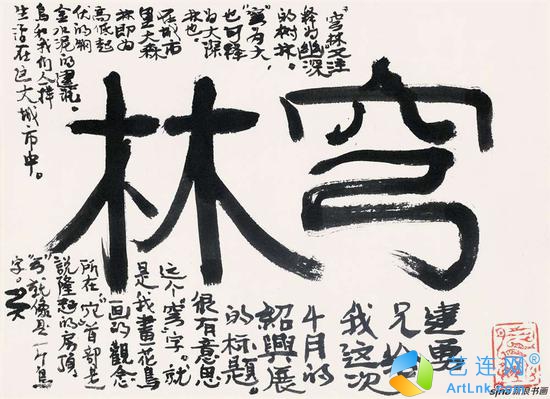 穹林
建勇
兄给
我这次
4月的
紹興展
的标题。
很有意思
这个"穹"字。就
是我畫花鸟
画的觀念
所在"穴"首部是
説隆起的房頂
"弓"就像是一个鸟
字。
"穹"林又注
释为幽深
的树林。
"穹"为大，
也可释
为大深
林也。
在城市
里大森
林即为
高低起
伏的钢
金水泥的建筑。
鸟和我们人一样
生活在这大城市中。
艺连网
ArtLnk.com
sina新浪书画